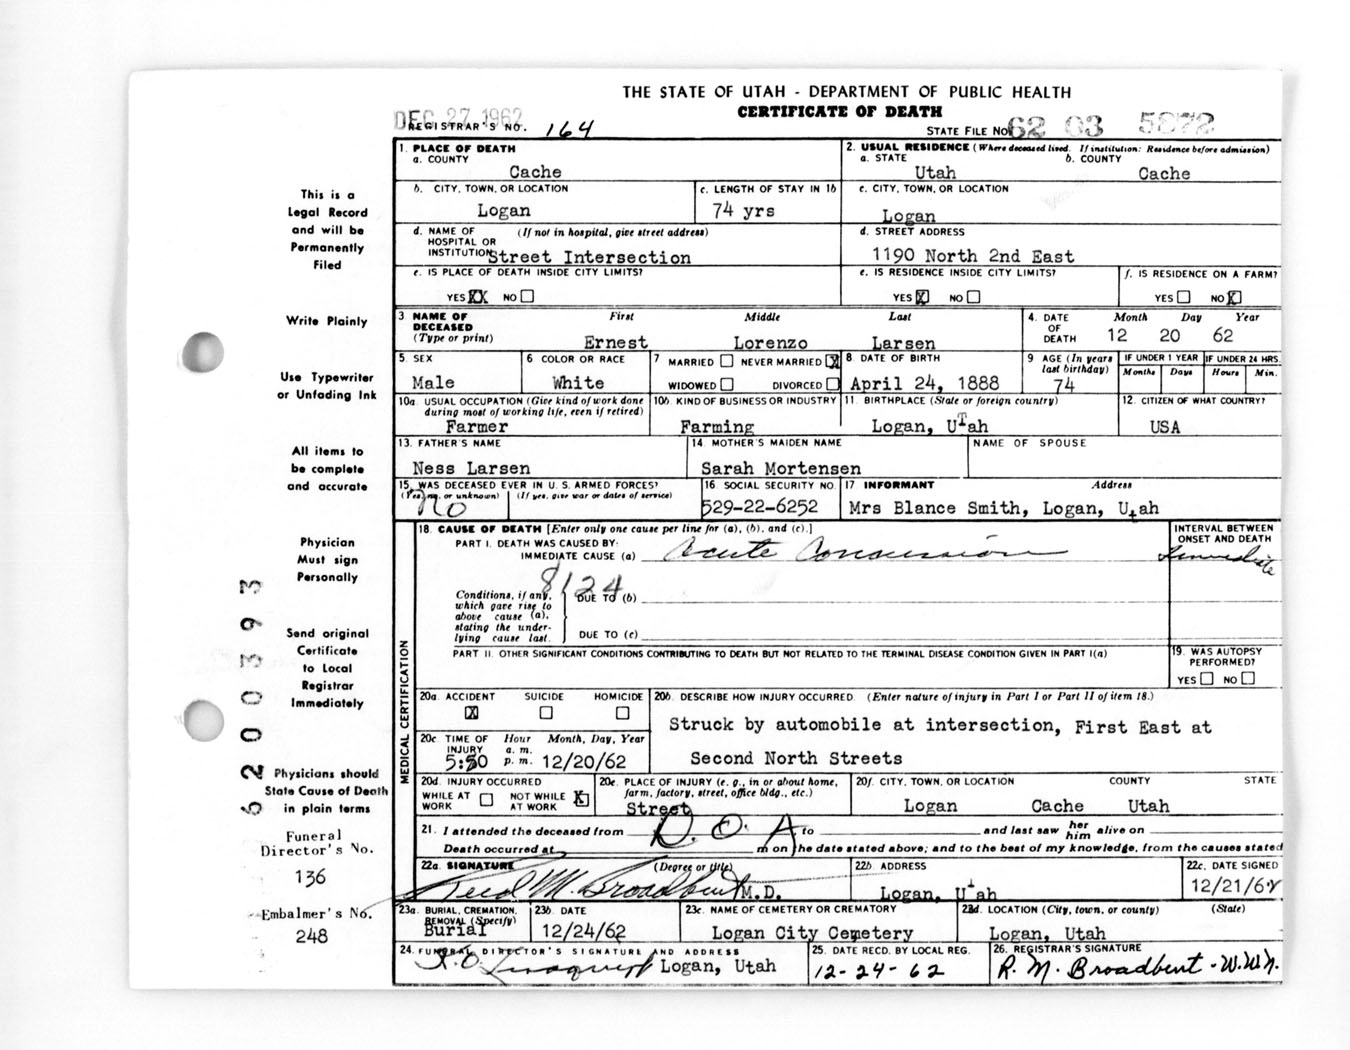 THE STATE OF UTAH - DEPARTMENT OF PUBLIC HEALTH
CERTIFICATE OF DEATH
DEC 27 1962
REGISTRAR'S NO. 164
STATE FILE NO. 62 03 5872
This is a
Legal Record
and will be
Permanently
Filed
Write Plainly
Use Typewriter
or Unfading Ink
All items to
be complete
and accurate
Physician
Must sign
Personally
Send original
Certificate
to Local
Registrar
Immediately
Physicians should
State Cause of Death
in plain terms
Funeral
Director's No.
136
Embalmer's No.
248
5200393
1. PLACE OF DEATH
a. COUNTY
Cache
2. USUAL RESIDENCE (Where deceased lived. If institution: Residence before admission)
a. STATE
Utah
b. COUNTY
Cache
b. CITY, TOWN, OR LOCATION
Logan
c. LENGTH OF STAY IN 1b
74 yrs
c. CITY, TOWN, OR LOCATION
Logan
d. NAME OF HOSPITAL OR INSTITUTION (If not in hospital, give street address)
Street Intersection
d. STREET ADDRESS
1190 North 2nd East
e. IS PLACE OF DEATH INSIDE CITY LIMITS?
YES XX NO
e. IS RESIDENCE INSIDE CITY LIMITS?
YES X NO
f. IS RESIDENCE ON A FARM?
YES NO X
3. NAME OF DECEASED (Type or print)
First Middle Last
Ernest Lorenzo Larsen
4. DATE OF DEATH
Month Day Year
12 20 62
5. SEX
Male
6. COLOR OR RACE
White
7 MARRIED NEVER MARRIED X
WIDOWED DIVORCED
8. DATE OF BIRTH
April 24, 1888
9 AGE (In years last birthday)
74
IF UNDER 1 YEAR
Months Days
IF UNDER 24 HRS.
Hours Min.
10a. USUAL OCCUPATION (Give kind of work done during most of working life, even if retired)
Farmer
10b. KIND OF BUSINESS OR INDUSTRY
Farming
11. BIRTHPLACE (State or foreign country)
Logan, Utah
12. CITIZEN OF WHAT COUNTRY?
USA
13. FATHER'S NAME
Ness Larsen
14. MOTHER'S MAIDEN NAME
Sarah Mortensen
NAME OF SPOUSE
15. WAS DECEASED EVER IN U. S. ARMED FORCES?
(Yes, no, or unknown) (If yes, give war or dates of service)
No
16. SOCIAL SECURITY NO.
529-22-6252
17 INFORMANT Address
Mrs Blance Smith, Logan, Utah
MEDICAL CERTIFICATION
18. CAUSE OF DEATH [Enter only one cause per line for (a), (b), and (c).]
PART I. DEATH WAS CAUSED BY:
IMMEDIATE CAUSE (a) Acute Concussion
INTERVAL BETWEEN ONSET AND DEATH
Immediate
8124
Conditions, if any, which gave rise to above cause (a), stating the underlying cause last.
DUE TO (b)
DUE TO (c)
PART II. OTHER SIGNIFICANT CONDITIONS CONTRIBUTING TO DEATH BUT NOT RELATED TO THE TERMINAL DISEASE CONDITION GIVEN IN PART I(a)
19. WAS AUTOPSY PERFORMED?
YES NO
20a. ACCIDENT SUICIDE HOMICIDE
X
20b. DESCRIBE HOW INJURY OCCURRED. (Enter nature of injury in Part I or Part II of item 18.)
Struck by automobile at intersection, First East at
Second North Streets
20c. TIME OF INJURY Hour Month, Day, Year
a. m.
5:50 p. m. 12/20/62
20d. INJURY OCCURRED
WHILE AT WORK NOT WHILE AT WORK X
20e. PLACE OF INJURY (e. g., in or about home, farm, factory, street, office bldg., etc.)
Street
20f. CITY, TOWN, OR LOCATION COUNTY STATE
Logan Cache Utah
21. I attended the deceased from D.O.A to and last saw her him alive on
Death occurred at m on the date stated above; and to the best of my knowledge, from the causes stated
22a. SIGNATURE (Degree or title)
Reed M. Broadbent M.D.
22b. ADDRESS
Logan, Utah
22c. DATE SIGNED
12/21/62
23a. BURIAL, CREMATION, REMOVAL (Specify)
Burial
23b. DATE
12/24/62
23c. NAME OF CEMETERY OR CREMATORY
Logan City Cemetery
23d. LOCATION (City, town, or county) (State)
Logan, Utah
24. FUNERAL DIRECTOR'S SIGNATURE AND ADDRESS
Logan, Utah
25. DATE RECD. BY LOCAL REG.
12-24-62
26. REGISTRAR'S SIGNATURE
R. M. Broadbent - W.W.N.